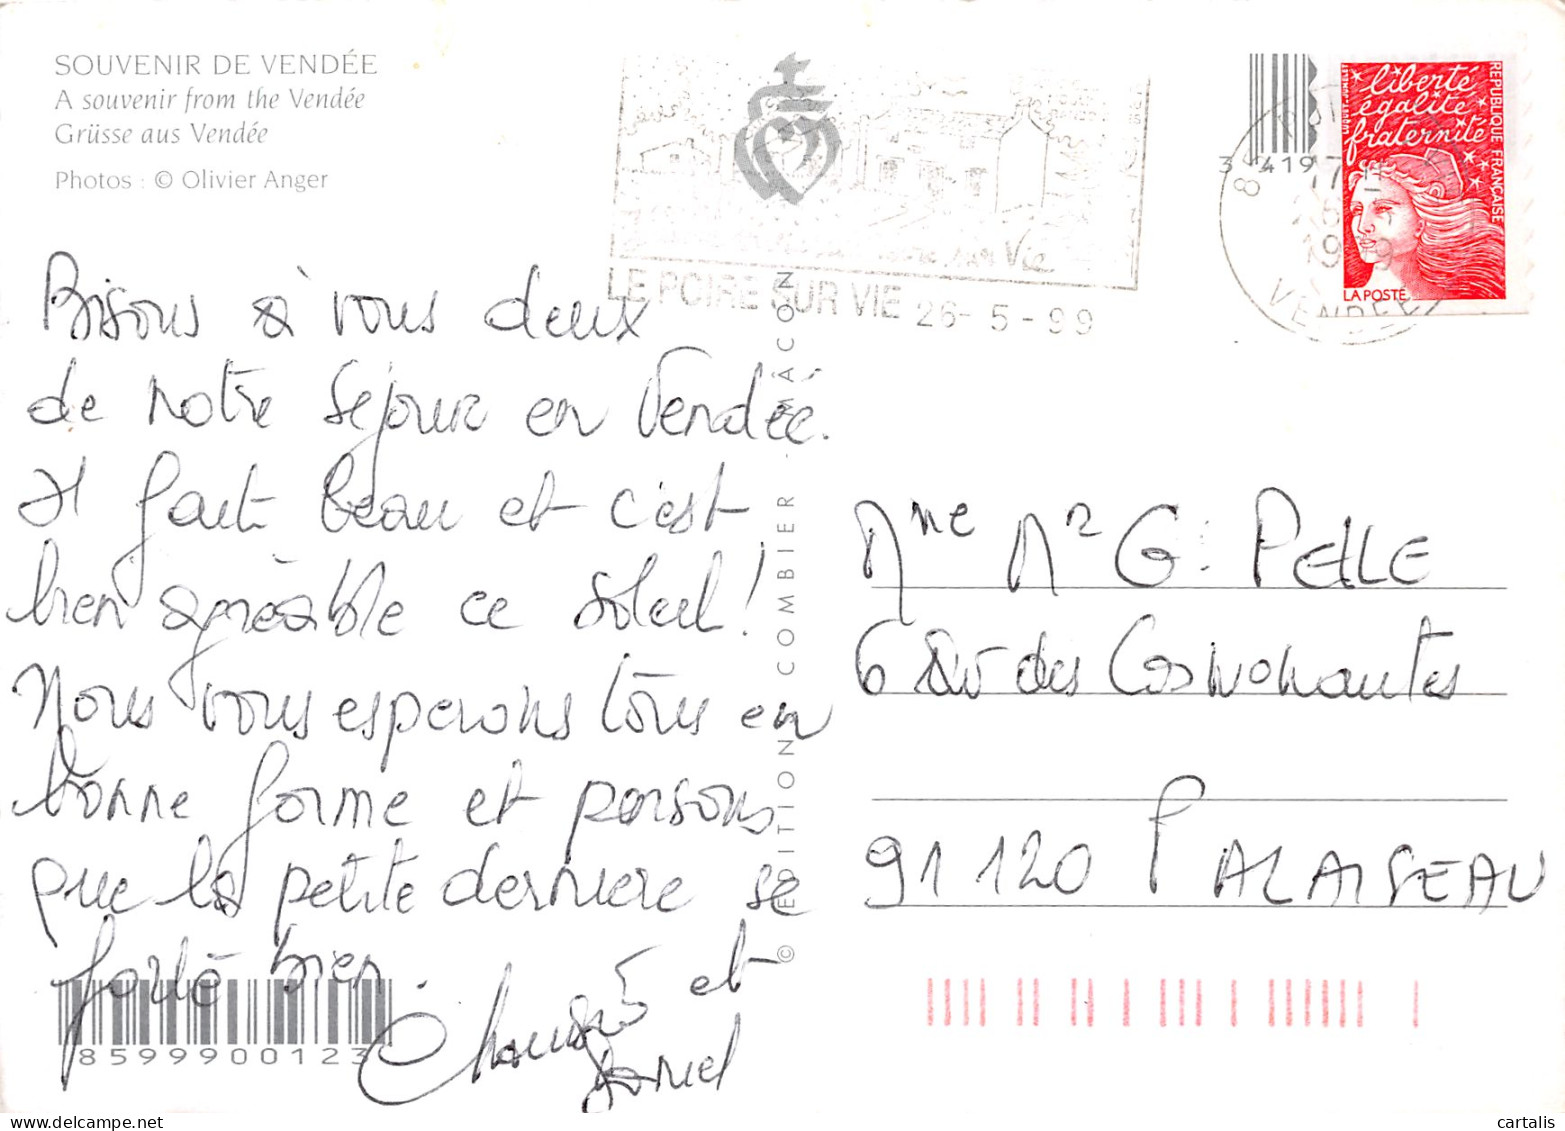 SOUVENIR DE VENDÉE
A souvenir from the Vendée
Grüsse aus Vendée
Photos : © Olivier Anger
Bisous à vous deux
de notre séjour en Vendée.
Il fait beau et c'est
bien agréable ce soleil!
Nous vous esperons tous en
bonne forme et pensons
que la petite dernière se
porte bien.
et
Daniel
8599900123
© EDITION COMBIER - MÂCON
sur Vie
LE POIRE SUR VIE 26-5-99
3 419
VENDEE
liberté
égalité
fraternité
REPUBLIQUE FRANÇAISE
LA POSTE
Mme Mr G. PELLE
6 des
91120 PALAISEAU
cartalis